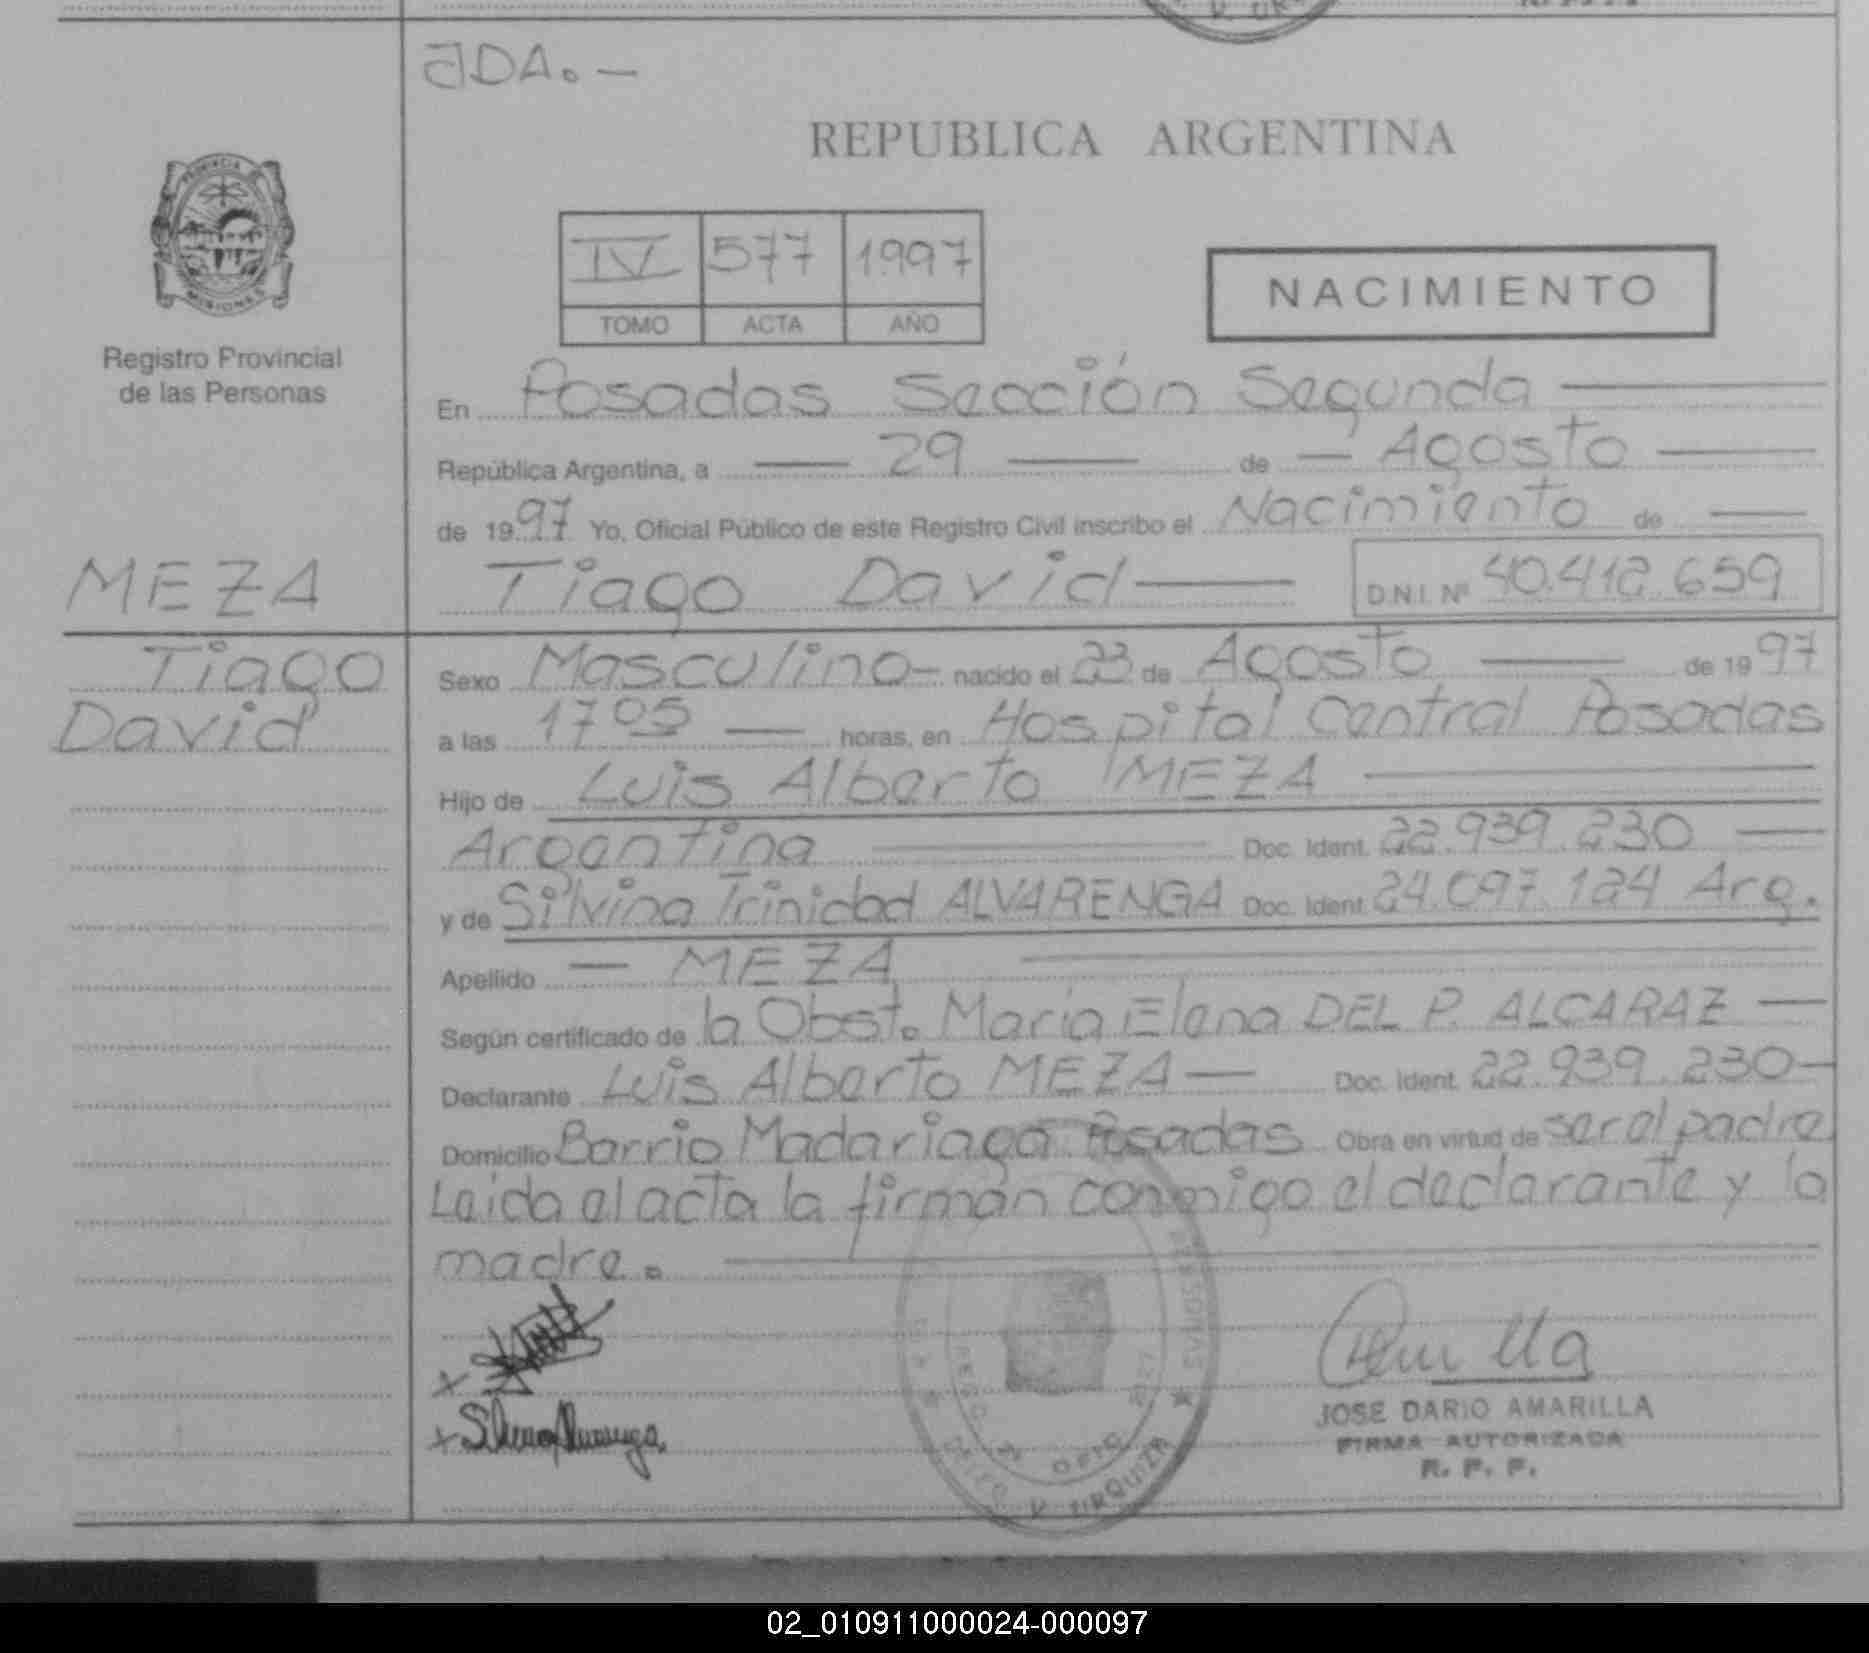 JDA. —
REPUBLICA ARGENTINA
PROVINCIA
MISIONES
Registro Provincial
de las Personas
IV 577 1997
TOMO ACTA AÑO
NACIMIENTO
En Posadas Sección Segunda
República Argentina, a — 29 — de — Agosto —
de 1997 Yo, Oficial Público de este Registro Civil inscribo el Nacimiento de —
MEZA
Tiago David — D.N.I. Nº 40.412.659
Tiago
David
Sexo Masculino — nacido el 23 de Agosto — de 1997
a las 17 05 — horas, en Hospital Central Posadas
Hijo de Luis Alberto MEZA —
Argentina — Doc. Ident. 22.939.230 —
y de Silvina Trinidad ALVARENGA Doc. Ident. 24.097.124 Arg.
Apellido — MEZA —
Según certificado de la Obst. Maria Elena DEL P. ALCARAZ —
Declarante Luis Alberto MEZA — Doc. Ident. 22.939.230 —
Domicilio Barrio Madariaga Posadas Obra en virtud de ser el padre
Leida el acta la firman conmigo el declarante y la
madre. —
JOSE DARIO AMARILLA
FIRMA AUTORIZADA
R. P. P.
V. URQUIZA
02_010911000024-000097